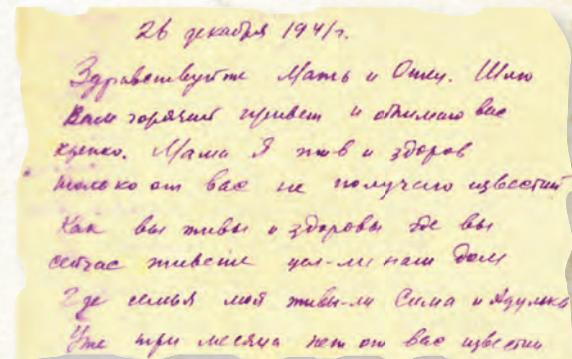 26 декабря 1941г.
Здравствуйте Мать и Отец. Шлю
Вам горячий привет и обнимаю вас
крепко. Мама Я жив и здоров
только от вас не получаю известий
Как вы живы и здоровы где вы
сейчас живете цел-ли наш дом
Где семья моя живы-ли Сима и
Уже три месяца нет от вас известий